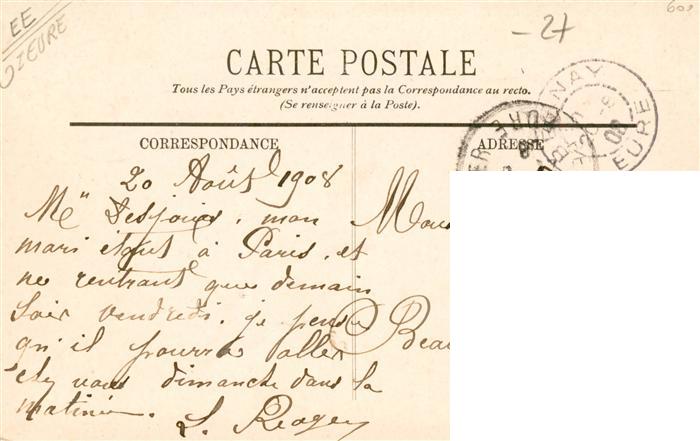 EE
EURE
-27
609
CARTE POSTALE
Tous les Pays étrangers n'acceptent pas la Correspondance au recto.
(Se renseigner à la Poste).
CORRESPONDANCE
ADRESSE
NAY
EURE
20 Août 1908
Mr Desjouis, mon
mari étant à Paris, et
ne rentrant que demain
soir vendredi, je pense
qu'il pourra aller
chez vous dimanche dans la
matinée.
Beau